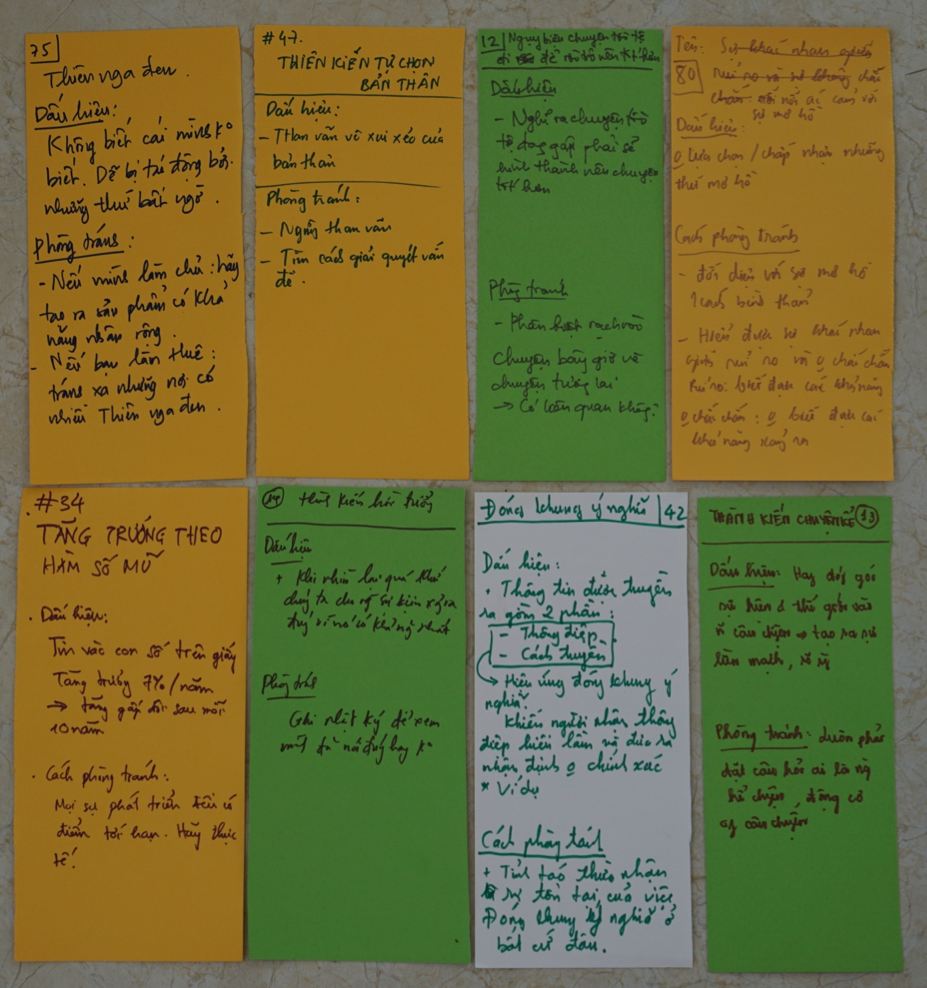 75
Thiên nga đen.
Dấu hiệu:
Không biết cái mình ko
biết. Dễ bị tác động bởi
những thứ bất ngờ.
Phòng tránh:
- Nếu mình làm chủ: hãy
tạo ra sản phẩm có khả
năng nhân rộng.
- Nếu bạn làm thuê:
tránh xa những nơi có
nhiều Thiên nga đen.
#47.
THIÊN KIẾN TỰ CHỌN
BẢN THÂN
Dấu hiệu:
- Than vãn về xui xẻo của
bản thân
Phòng tránh:
- Ngừng than vãn
- Tìm cách giải quyết vấn
đề.
12 Ngụy biện chuyện tồi tệ
đi để rồi tốt hơn
Dấu hiệu
- Nghĩ ra chuyện tồi
tệ đang gặp phải sẽ
hình thành nên chuyện
tốt hơn
Phòng tránh
- Phân biệt rạch ròi
chuyện bây giờ và
chuyện tương lai
→ Có liên quan không?
Tên: Sự khác nhau giữa
80 rủi ro và sự không chắc
chắn
sự mơ hồ
Dấu hiệu:
lựa chọn / chấp nhận những
thứ mơ hồ
Cách phòng tránh
- đối diện với sự mơ hồ
1 cách bình thản
- Hiểu được sự khác nhau
giữa rủi ro và o chắc chắn
Rủi ro: biết được các khả năng
o chắc chắn: o biết được các
khả năng xảy ra
#34
TĂNG TRƯỞNG THEO
HÀM SỐ MŨ
. Dấu hiệu:
Tin vào con số trên giấy
Tăng trưởng 7%/năm
→ tăng gấp đôi sau mỗi
10 năm
. Cách phòng tránh:
Mọi sự phát triển đều có
điểm tới hạn. Hãy thực
tế!
14 kiến hồi tưởng
Dấu hiệu
+ Khi nhìn lại quá khứ
chúng ta cho rằng sự kiện xảy ra
Phòng tránh
Ghi nhật ký để xem
nó đúng hay ko
Đóng khung ý nghĩa 42
Dấu hiệu:
. Thông tin được truyền
ra gồm 2 phần:
- Thông điệp
- Cách truyền
→ Hiệu ứng đóng khung ý
nghĩa.
khiến người nhận thông
điệp hiểu lầm và đưa ra
nhận định o chính xác
* Ví dụ
Cách phòng tránh
+ Tỉnh táo thừa nhận
sự tồn tại của việc
Đóng khung ý nghĩa ở
bất cứ đâu.
THÀNH KIẾN CHUYỆN KỂ 13
Dấu hiệu: Hay đóng gói
sự kiện & thế giới vào
câu chuyện → tạo ra sự
Phòng tránh: luôn phải
đặt câu hỏi ai là ng
kể chuyện, động cơ
câu chuyện